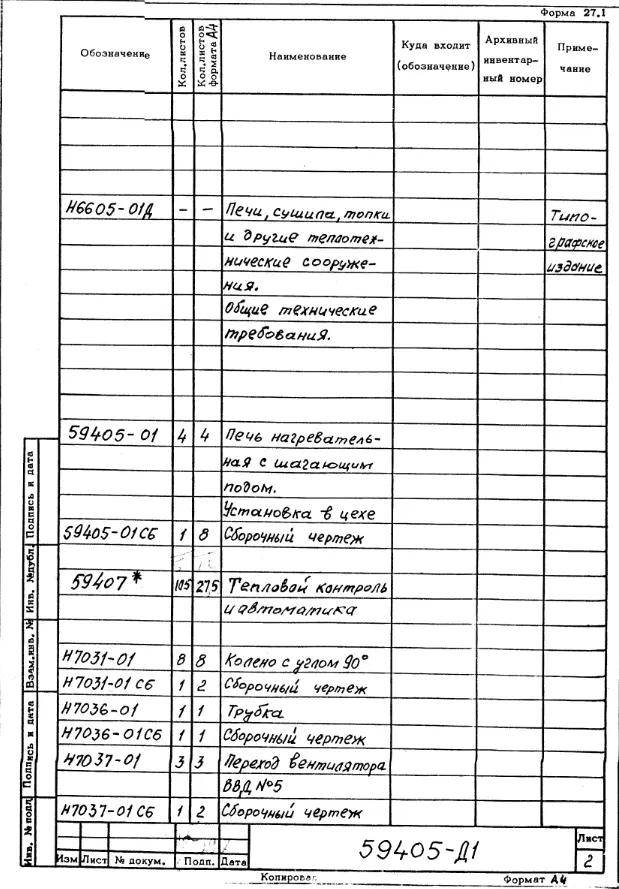 Форма 27.1
Обозначение Кол.листов Кол.листов формата А4 Наименование Куда входит (обозначение) Архивный инвентарный номер Примечание
Н6605-01Д - - Печи, сушила, топки Типо-
и другие теплотех- графское
нические сооруже- издание
ния.
Общие технические
требования.
59405-01 4 4 Печь нагреватель-
ная с шагающим
подом.
Установка в цехе
59405-01СБ 1 8 Сборочный чертеж
59407* 105 275 Тепловой контроль
и автоматика
Н7031-01 8 8 Колено с углом 90°
Н7031-01 СБ 1 2 Сборочный чертеж
Н7036-01 1 1 Трубка
Н7036-01СБ 1 1 Сборочный чертеж
Н7037-01 3 3 Переход вентилятора
ВВД №5
Н7037-01 СБ 1 2 Сборочный чертеж
Подпись и дата
Инв. №дубл.
Взам.инв. №
Подпись и дата
Инв. №подл.
Изм Лист № докум. Подп. Дата
59405-Д1
Лист
2
Копировал
Формат А4